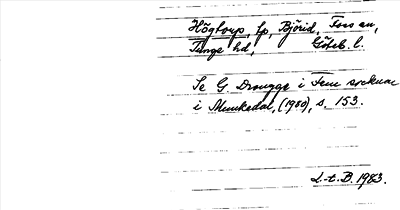 Högtorp, lp, Björid, Foss sn,
Tunge hd, Göteb. l.
Se G. Drougge i Fem socknar
i Munkedal, (1980), s. 153.
L-t. B. 1983.